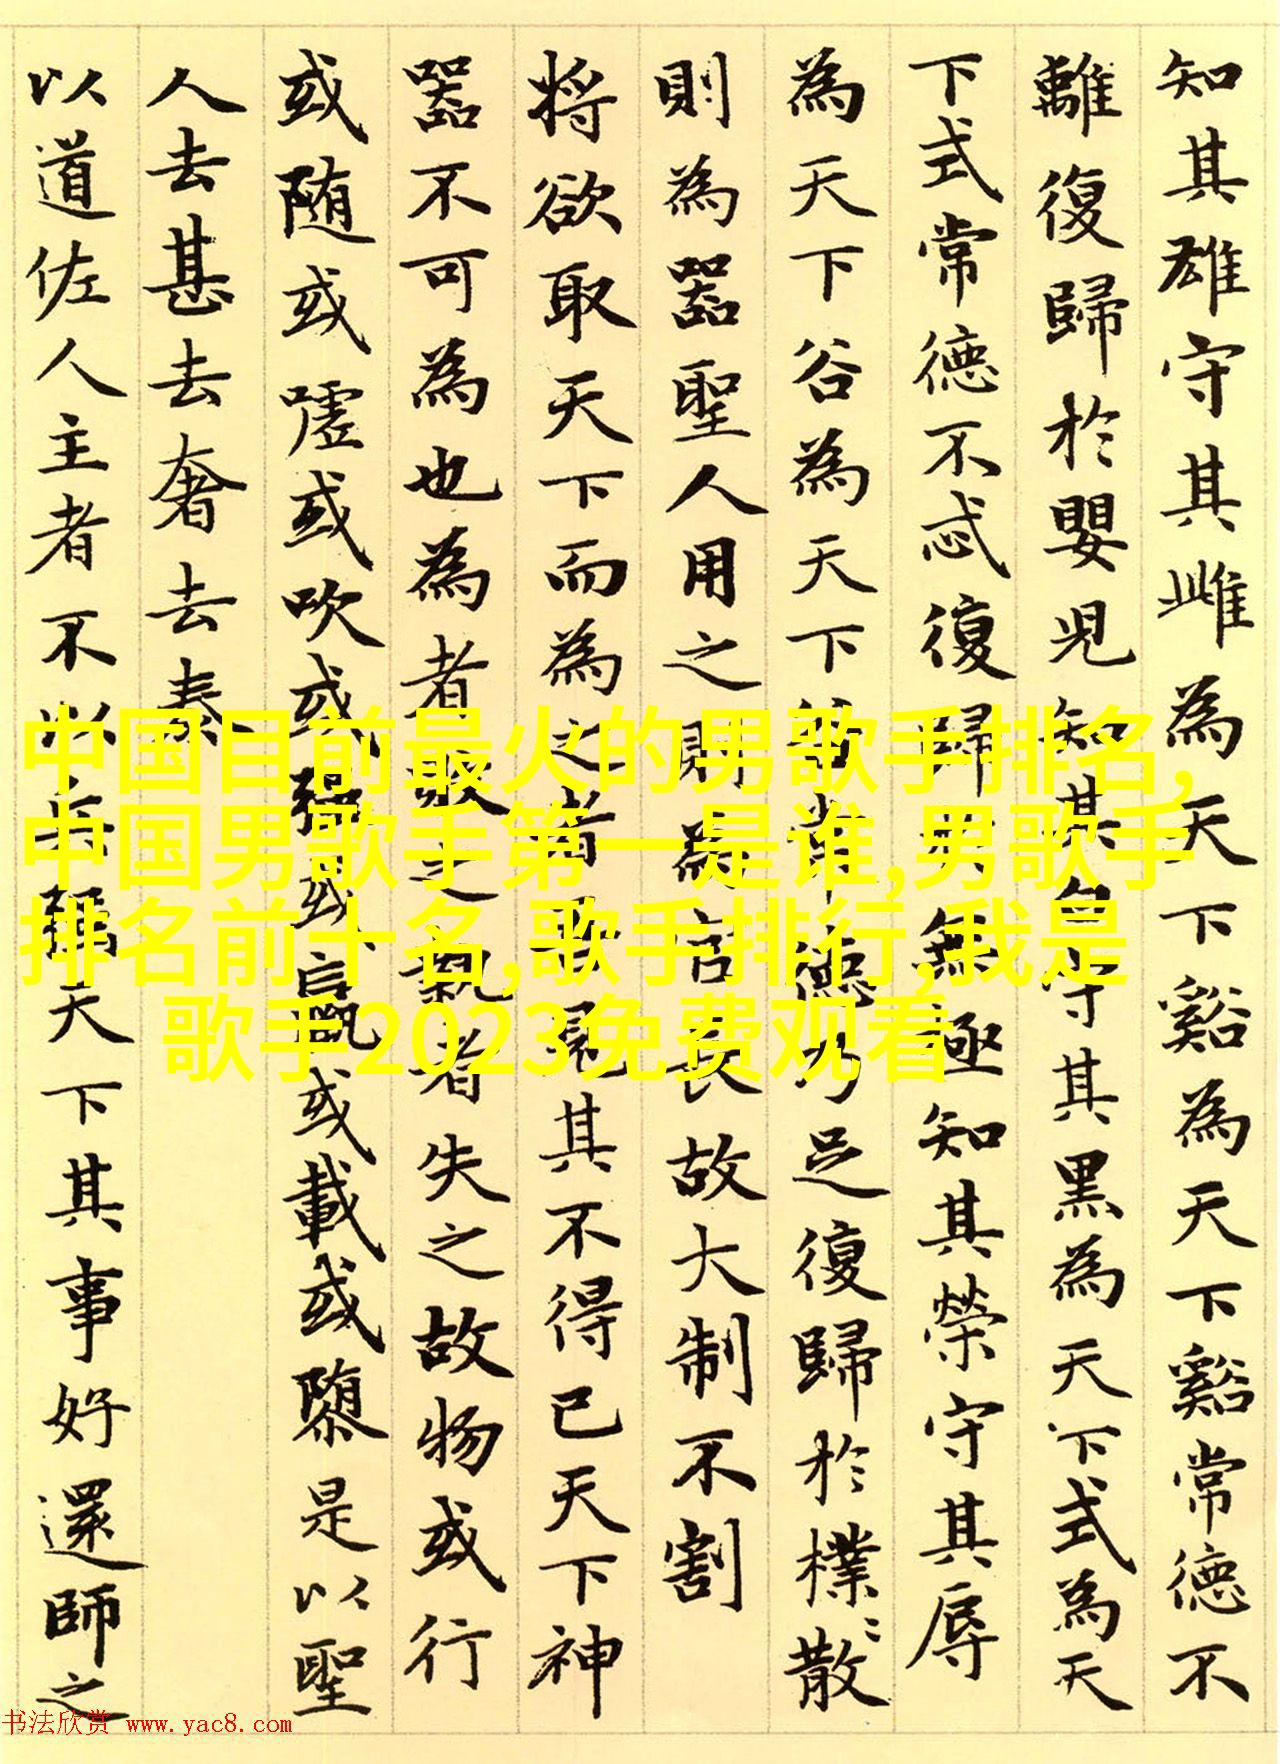 知其雄守其雌為天下谿為天下谿常德不
離復歸於嬰兒知其白守其黑為天下式為天
下式常德不忒復歸於無極知其榮守其辱
為天下谷為天下谷常德乃足復歸於樸〻散
則為器聖人用之則為官長故大制不割
将欲取天下而為之者吾見其不得已天下神
器不可為也為者敗之執者失之故物或行
或随或嘘或吹或強或羸或載或隳是以聖
人去甚去奢去泰
以道佐人主者不以兵強天下其事好還師之
中国目前最火的男歌手排名,
中国男歌手第一是谁,男歌手
排名前十名,歌手排行,我是
歌手2023免费观看
书法欣赏 www.yac8.com